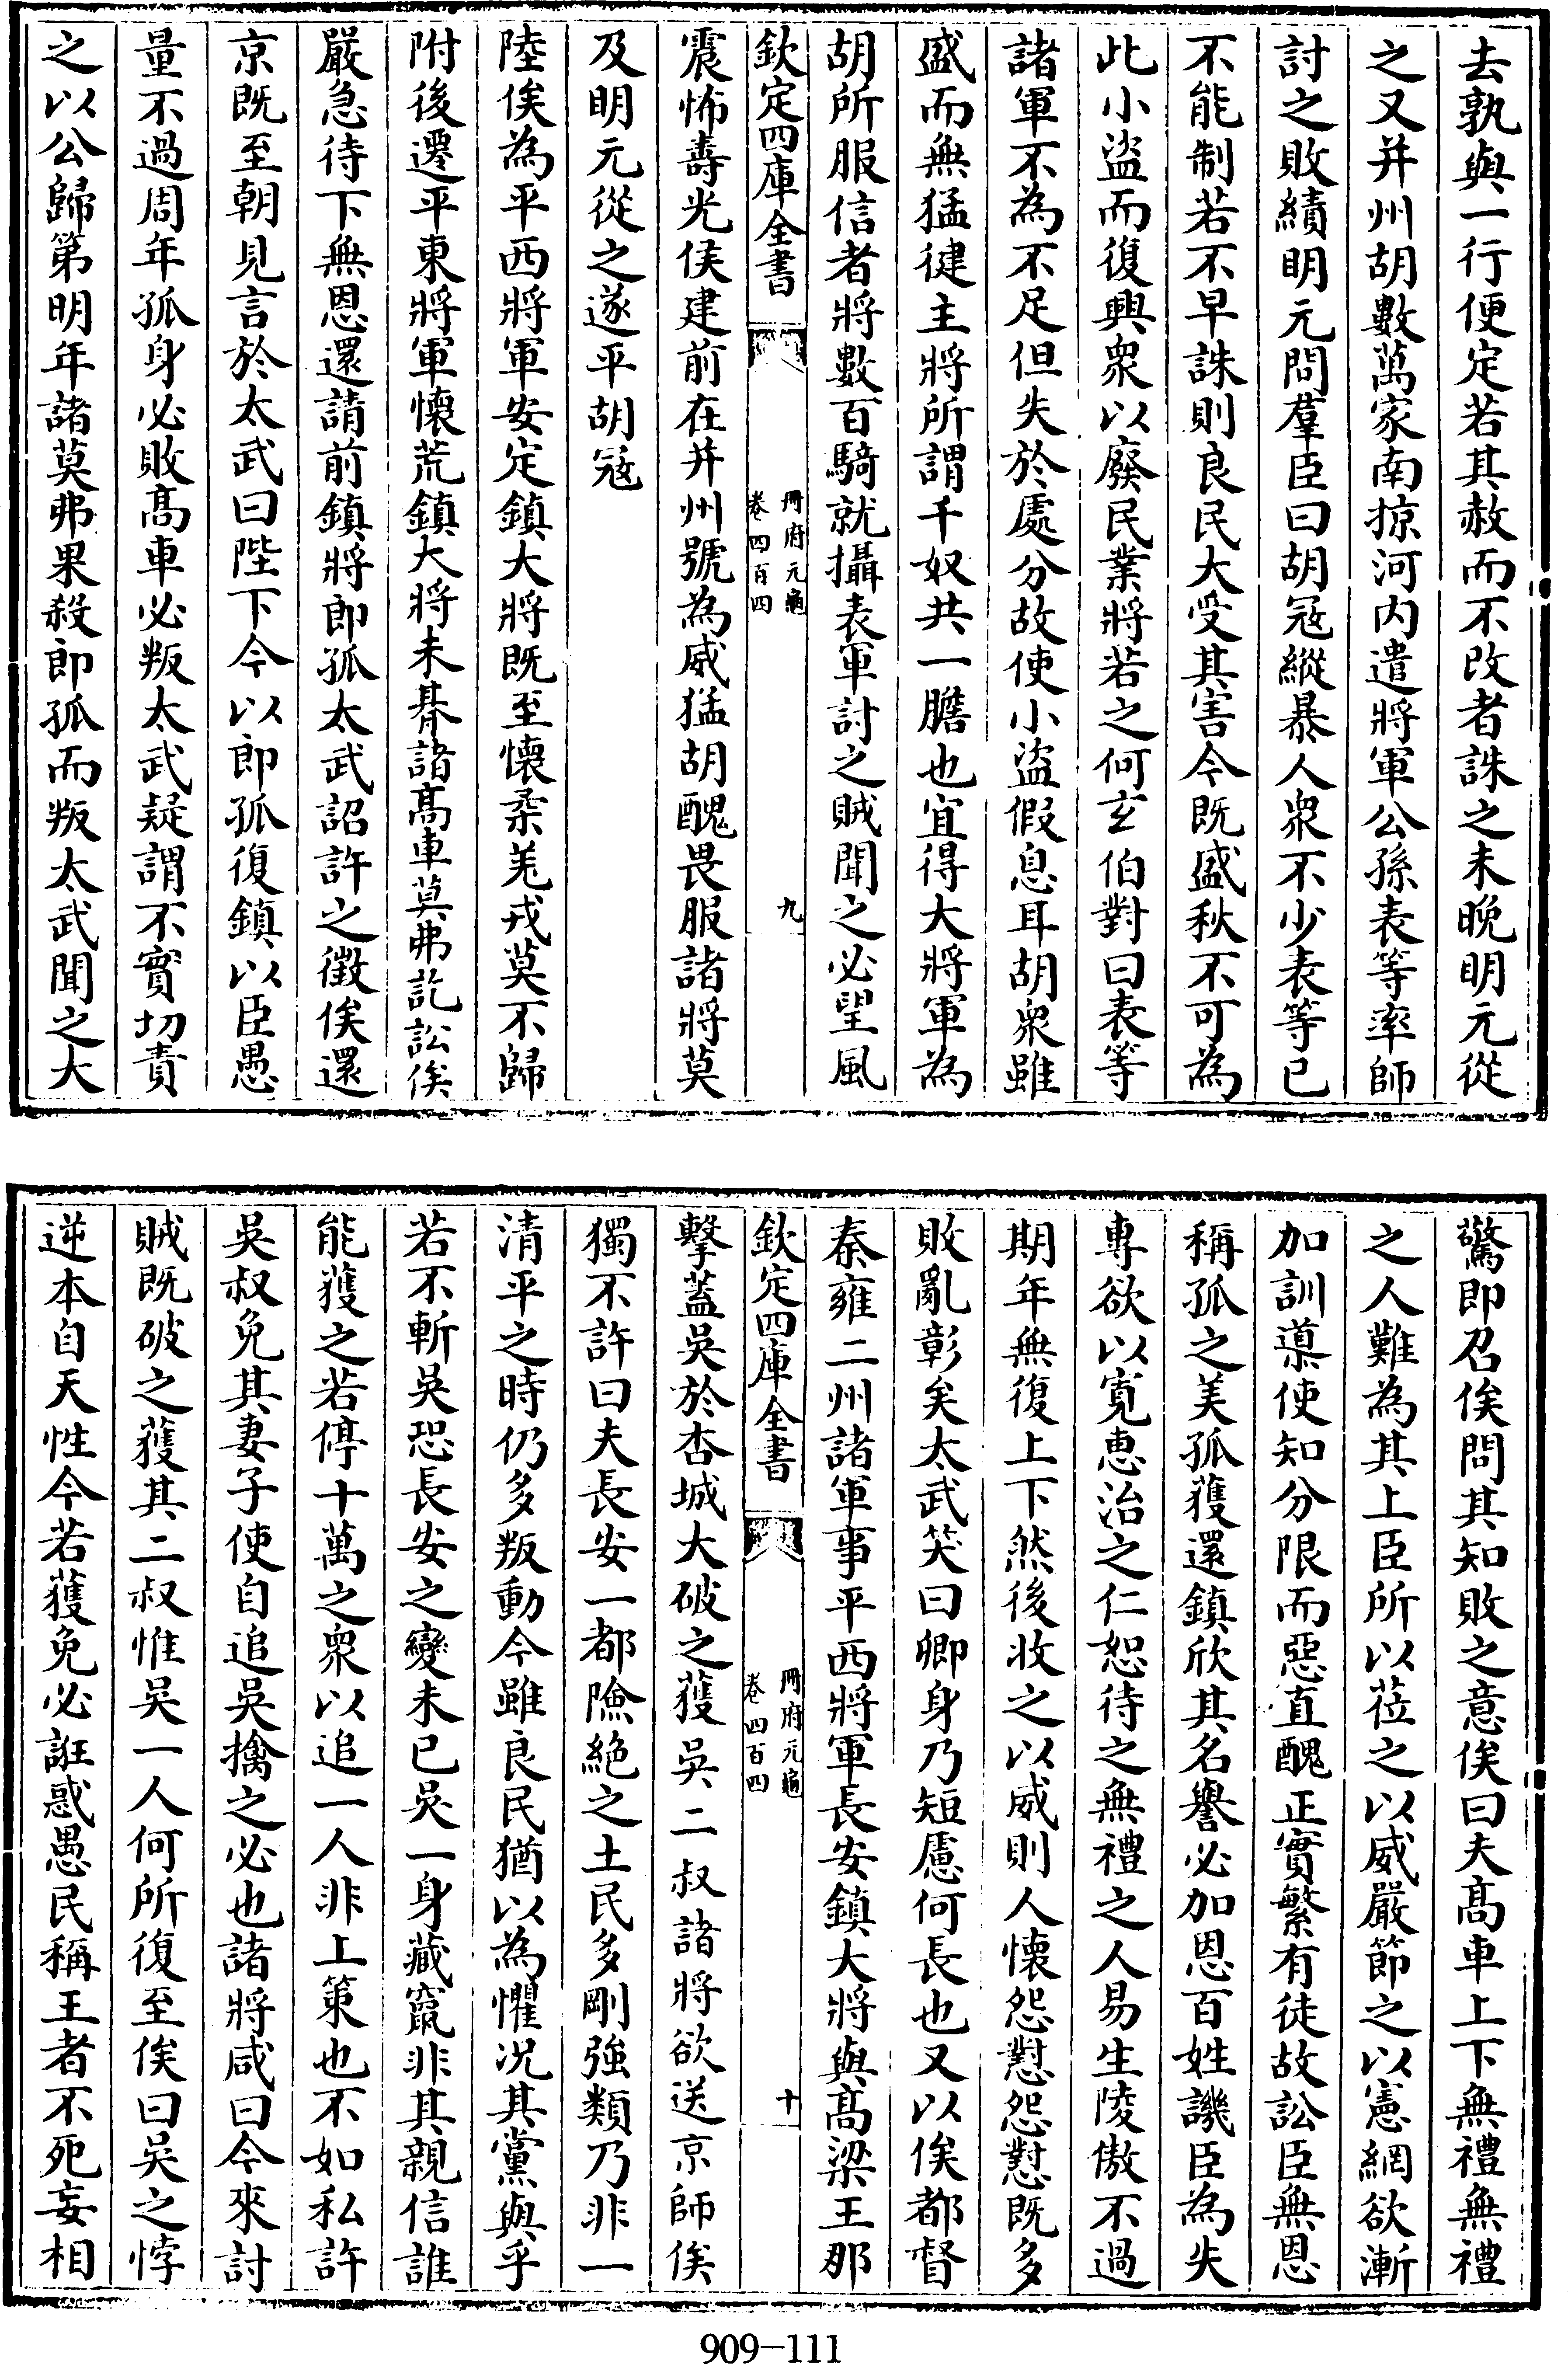 去孰與一行便定若其赦而不改者誅之未晚明元從
之又并州胡數萬家南掠河内遣將軍公孫表等率師
討之敗績明元問羣臣曰胡冦縱暴人衆不少表等已
不能制若不早誅則良民大受其害今既盛秋不可為
此小盜而復興衆以廢民業將若之何玄伯對曰表等
諸軍不為不足但失於處分故使小盜假息耳胡衆雖
盛而無猛徤主將所謂千奴共一膽也宜得大將軍為
胡所服信者將數百騎就攝表軍討之賊聞之必望風
欽定四庫全書
冊府元龜
卷四百四
九
震怖壽光侯建前在并州號為威猛胡醜畏服諸將莫
及明元從之遂平胡冦
陸俟為平西將軍安定鎮大將既至懷柔羌戎莫不歸
附後遷平東將軍懷荒鎮大將未朞諸髙車莫弗訖訟俟
嚴急待下無恩還請前鎮將郎孤太武詔許之徵俟還
京既至朝見言於太武曰陛下今以郎孤復鎮以臣愚
量不過周年孤身必敗髙車必叛太武疑謂不實切責
之以公歸第明年諸莫弗果殺郎孤而叛太武聞之大
驚即召俟問其知敗之意俟曰夫髙車上下無禮無禮
之人難為其上臣所以莅之以威嚴節之以憲網欲漸
加訓導使知分限而惡直醜正實繁有徒故訟臣無恩
稱孤之美孤獲還鎮欣其名譽必加恩百姓譏臣為失
專欲以寛惠治之仁恕待之無禮之人易生陵傲不過
期年無復上下然後收之以威則人懷怨懟怨懟既多
敗亂彰矣太武笑曰卿身乃短慮何長也又以俟都督
秦雍二州諸軍事平西將軍長安鎮大將與髙梁王那
欽定四庫全書
冊府元龜
卷四百四
十
擊蓋吳於杏城大破之獲吳二叔諸將欲送京師俟
獨不許曰夫長安一都險絶之土民多剛強類乃非一
清平之時仍多叛動今雖良民猶以為懼况其黨與乎
若不斬吳恐長安之變未已吳一身藏竄非其親信誰
能獲之若停十萬之衆以追一人非上策也不如私許
吳叔免其妻子使自追吳擒之必也諸將咸曰今來討
賊既破之獲其二叔惟吳一人何所復至俟曰吳之悖
逆本自天性今若獲免必誑惑愚民稱王者不死妄相
909-111